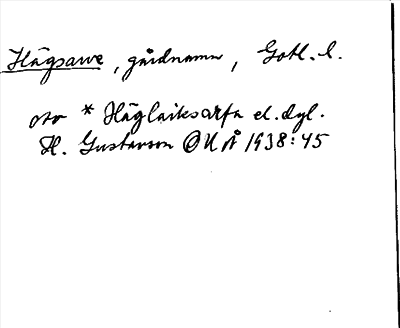 Hägsarve, gårdnamn, Gotl. l.
* Häglaiksarfa el. dyl.
H. Gustavson OUÅ 1938:45